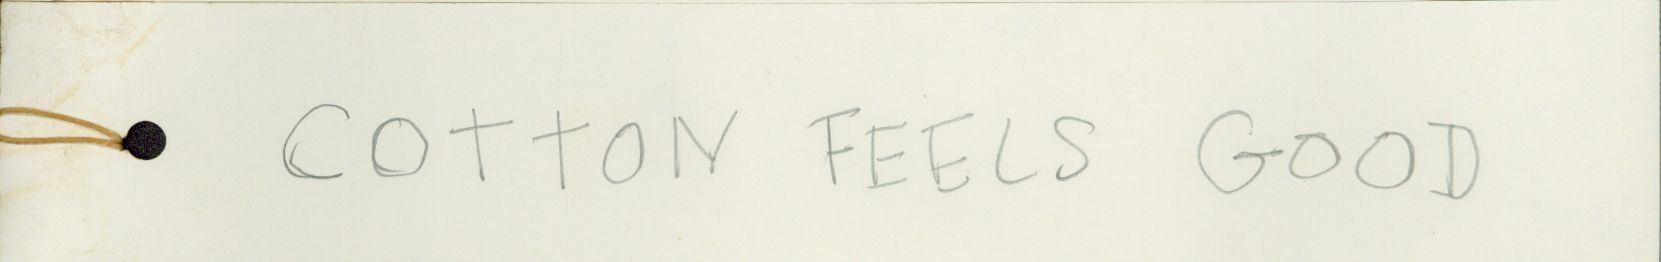 COTTON FEELS GOOD